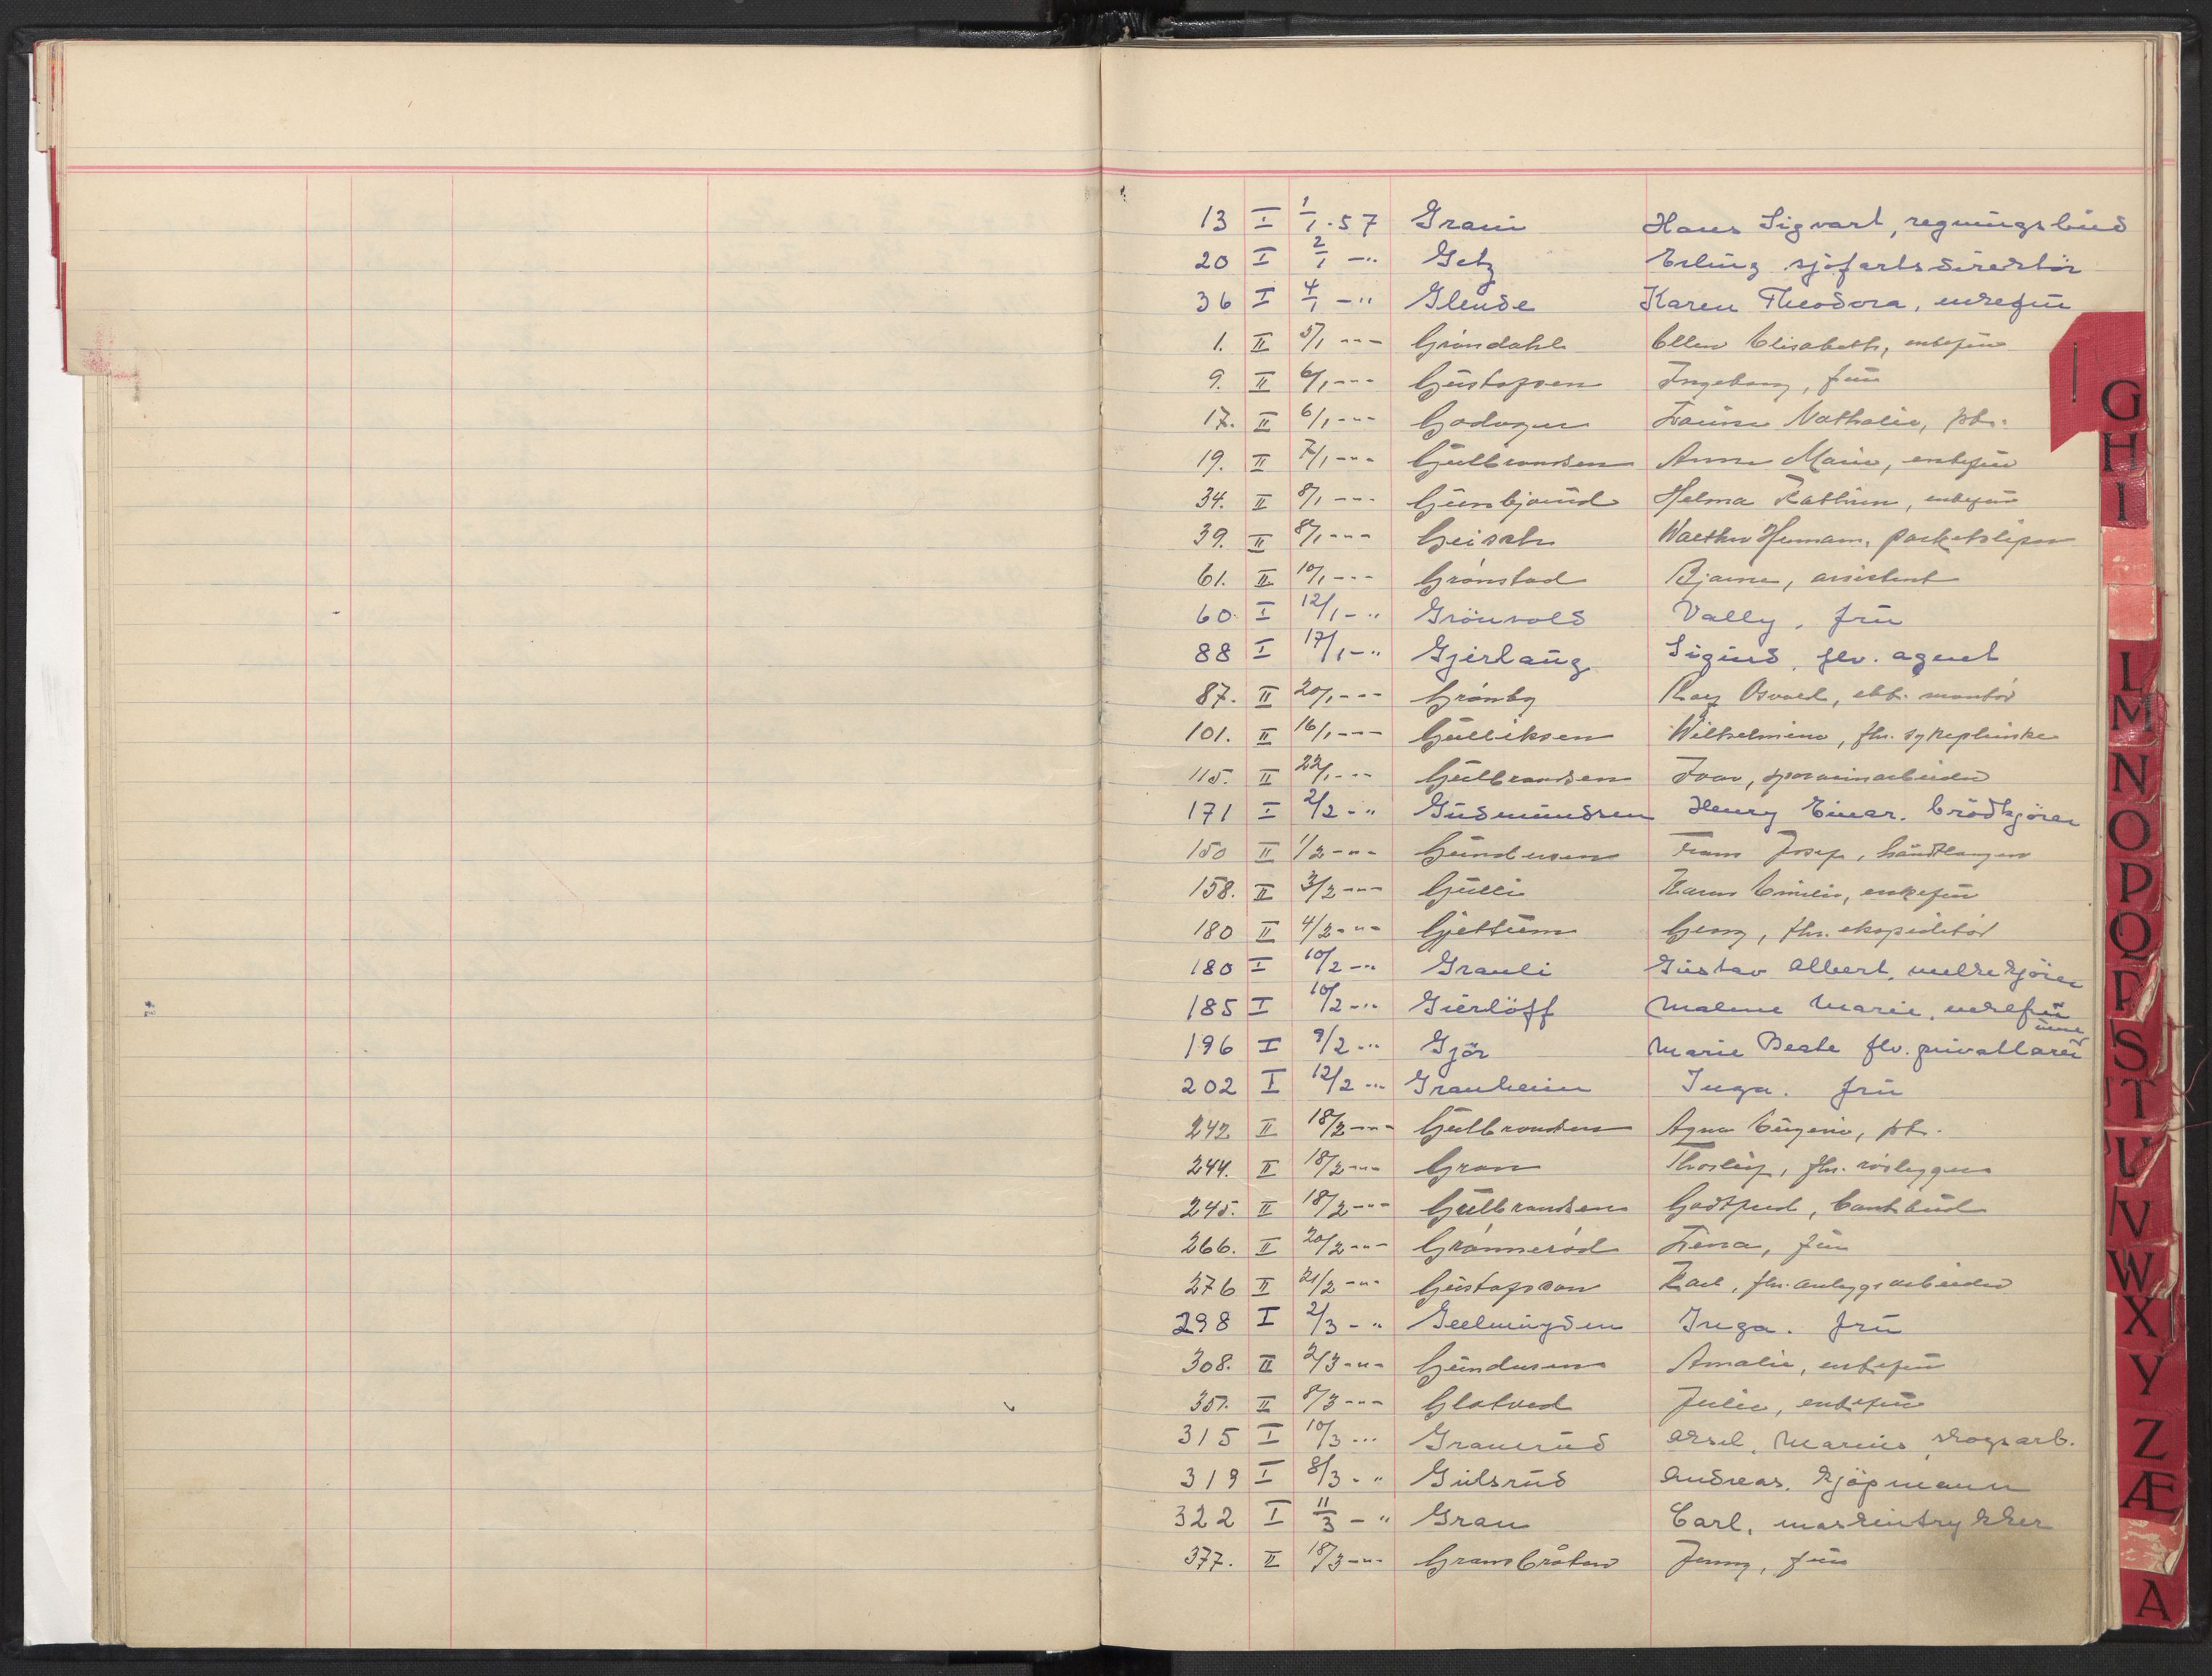 13 I 1/1 - 57 Grani Hans Sigvart, regningsbud
20 I 2/1 - " Getz Erling sjøfartsdirektör
36 I 4/1 - " Glende Karen Theodora, enkefru
1. II 5/1 - " - Gröndahl Ellen Elisabeth, enkefru
9. II 6/1 - " - Gustafsen Ingeborg, fru
17. II 6/1 - " - Godager Nathalie,
19. II 7/1 - " - Gulbrandsen Anne Marie, enkefru
34. II 8/1 - " - Gunbjørud Helma Kathrin, enkefru
39. II 8/1 - " - Geisch Walther Hermann, parketsliper
61. II 10/1 - " - Grönstad Bjarne, assistent
60 I 12/1 - " Grönvold Vally, fru
88 I 17/1 - " Gjerlaug Sigurd, flv. agent
87. II 20/1 - " - Grönby Roy Osvald, ekt. montör
101. II 16/1 - " - Gulliksen Wilhelmine, fhv. sykepleierske
115. II 22/1 - " - Gulbrandsen Ivar, sporveisarbeider
171 I 2/2 - " Gudmundsen Henry Einar. brödkjörer
150 II 1/2 - " - Gundersen Frans Josef, håndlanger
158. II 3/2 - " - Gulli Karen Emilie, enkefru
180 II 4/2 - " - Gjettum Georg, fhv. ekspeditör
180 I 10/2 - " Grauli Gustav Albert, melkekjörer
185 I 10/2 - " Gierlöff Malene Marie, enkefru
196 I 9/2 - " Gjör Marie Beate flv. privatlærerinne
202 I 12/2 - " Granheim Inga. fru
242 II 18/2 - " - Gulbrandsen Agna Eugenie,
244. II 18/2 - " - Gran Thorleif, fhv. rörlegger
245. II 18/2 - " - Gulbrandsen Godtfred, bankbud
266. II 20/2 - " - Grönneröd Lena, fru
276 II 21/2 - " - Gustafsson Karl, fhv. anleggsarbeider
298 I 2/3 - " Geelmuyden Inga. fru
308. II 2/3 - " - Gundersen Amalie, enkefru
351. II 8/3 - " - Glatved Julie, enkefru
315 I 10/3 - " Granerud Aksel, Marius skogsarb.
319 I 8/3 - " Gulsrud Andreas. kjöpmann
322 I 11/3 - " Gran Carl, maskintrykker
377. II 18/3 - " - Gransbråten Jenny, fru
G
H
I
L
M
N
O
P
Q
R
S
T
U
V
W
X
Y
Z
Æ
A